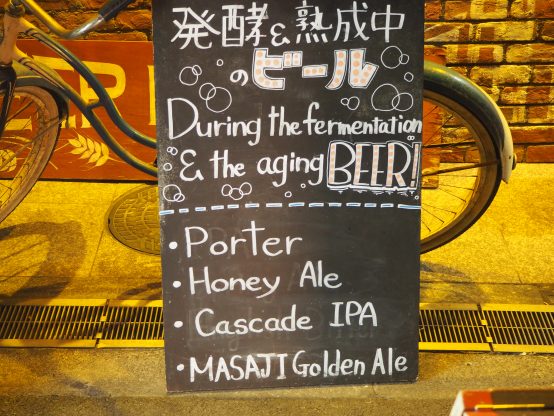 発酵&熟成中
のビール
During the fermentation
& the aging BEER!
• Porter
• Honey Ale
• Cascade IPA
• MASAJI Golden Ale